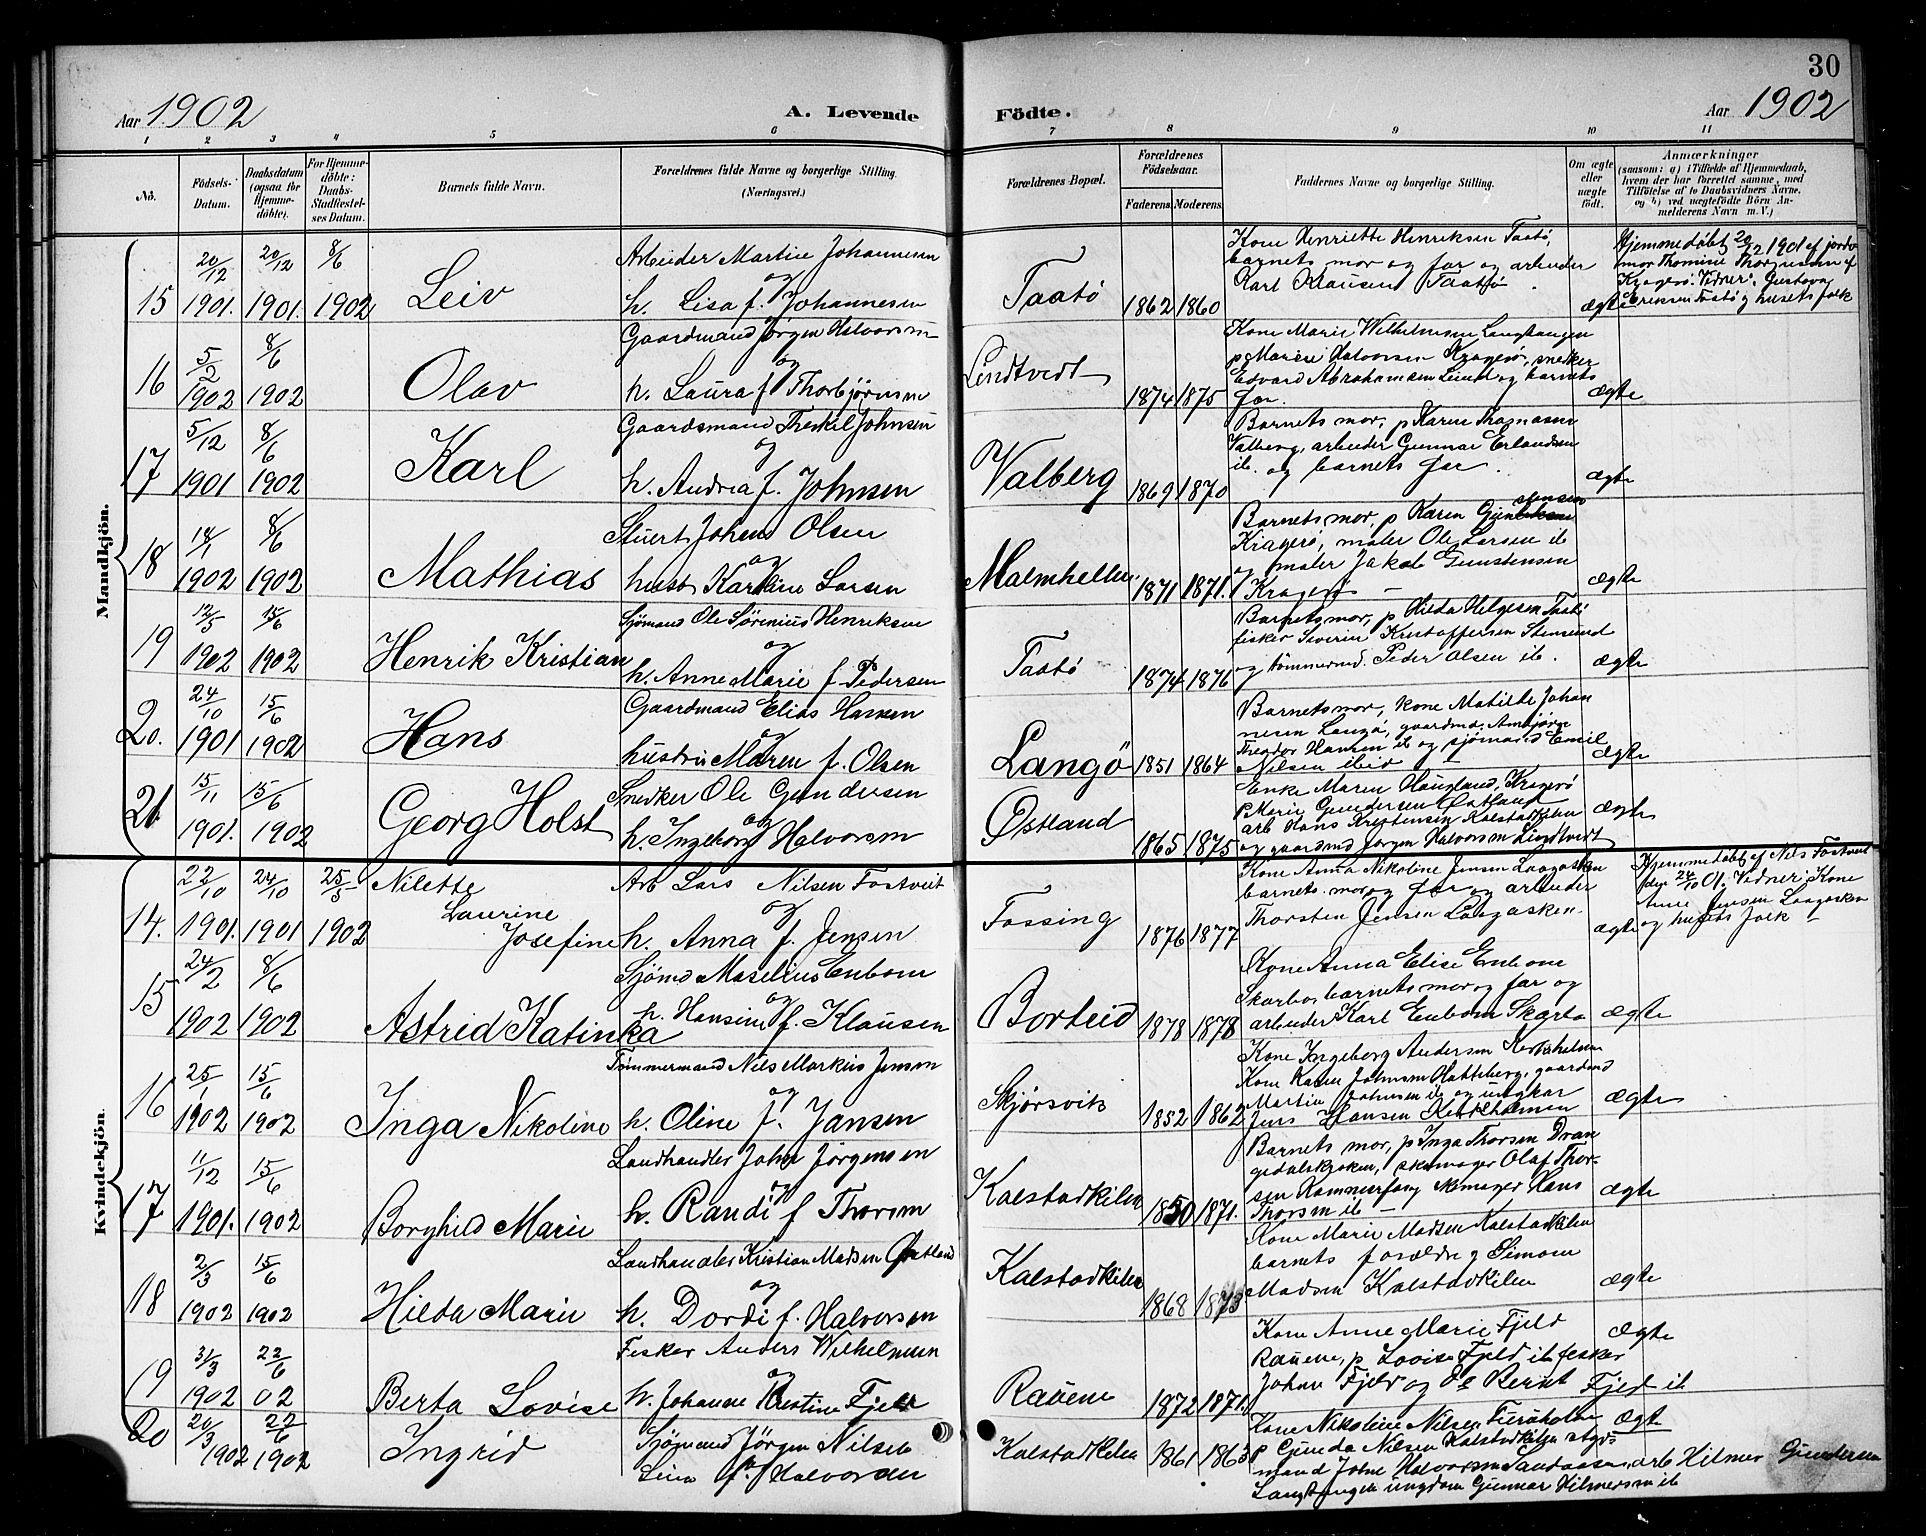 30
Aar 1902
A. Levende
Födte.
Aar 1902
1 2 3 4 5 6 7 8 9 10 11
No.
Födsels-Datum.
Daabsdatum (ogsaa for Hjemme-döbte).
For Hjemme-döbte: Daabs-Stadfæstel-ses Datum.
Barnets fulde Navn.
Forældrenes fulde Navne og borgerlige Stilling. (Næringsvei.)
Forældrenes Bopæl.
Forældrenes Födselsaar.
Faderens. Moderens.
Faddernes Navne og borgerlige Stilling.
Om ægte eller uægte födt.
Anmærkninger
(saasom: a) i Tilfælde af Hjemmedaab,
hvem der har forrettet samme, med
Tilföielse af to Daabsvidners Navne,
og b) ved uægtefödte Börn An-
melderens Navn m. V.)
Mandkjön.
15 20/12 1901. 20/12 1901. 8/6 1902 Leiv
Arbeider Martin Johannesen
og
h. Lisa f. Johannesen
Taatö 1862 1860
Kone Henriette Henriksen Taatö,
barnets mor og far og arbeider
Karl Klausen Taatö
ægte
Hjemmedöbt 20/12 1901 af jorde
mor Thomine
Kragerö. Vidner: Gustava
Eriksen Taatö og husets folk
16 5/2 1902 8/6 1902 Olav
Gaardmand Jörgen Halvorsen
og
h. Laura f. Thorbjörnsen
Lindtvedt 1874 1875
Kone Marie Wilhelmsen Langtangen
p Marie Halvorsen Kragerö, snedker
Edvard Abrahamsen og barnets
far.
ægte
17 5/12 1901 8/6 1902 Karl
Gaardsmand Therkel Johnsen
og
h. Andrea f. Johnsen
Valberg 1869 1870
Barnets mor, p Karen Thomasen
Valberg, arbeider Gunnar Erlandsen
ib. og barnets far
ægte
18 18/1 1902 8/6 1902 Mathias
Stuert Johan Olsen
og
hust Karoline Larsen
Malmhellen 1871 1871.
Barnets mor, p Karen Gunstensen
Kragerö, maler Ole Larsen ib
og maler Jakob Gunstensen
Kragerö —
ægte
19 12/5 1902 15/6 1902 Henrik Kristian
Sjömand Ole Sörenius Henriksen
og
h. Anne Marie f Pedersen
Taatö 1874 1876
Barnets mor, p Hilda Helgesen Taatö
fisker Severin Kristoffersen Stensund
og tömmermd. Peder Olsen ib.
ægte
20. 24/10 1901 15/6 1902 Hans
Gaardmand Elias Hansen
og
hustru Maren f. Olsen
Langö 1851 1864
Barnets mor, kone Matilde Johan
nesen Langö, gaardmd. Arnbjörn
Theodor Hansen ib og sjömand Emil
Nilsen ibid
ægte
21. 15/11 1901. 15/6 1902 Georg Holst
Snedker Ole Gundersen
og
h. Ingeborg Halvorsen
Østland 1865 1875
Enke Maren Haugland, Kragerö
p Marie Gundersen Østland
arb Hans Kristensen Kalstadkilen
og gaardmd Jörgen Halvorsen Lindtvedt
ægte
Kvindekjön.
14. 22/10 1901. 24/10 1901 25/5 1902 Nilette
Laurine
Josefine
Arb Lars Nilsen Tostveit
og
h. Anna f. Jensen
Tossing 1876 1877
Kone Anna Nikoline Jensen Langasken
barnets mor og far og arbeider
Thorsten Jensen Langasken.
ægte
Hjemmedöbt af Nils Tostveit
24/10 01. Vidner: Kone
Anne Jensen Langasken
og husets folk —
15 24/2 1902 8/6 1902 Astrid Katinka
Sjömd Maselius Enbom
og
h. Hansine f. Klausen
Borteid 1878 1878
Kone Anna Elise Enbom
Skarbo, barnets mor og far og
arbeider Karl Enbom Skarbo
ægte
16 25/1 1902 15/6 1902 Inga Nikoline
Tömmermand Nils Markus Jensen
og
h. Oline f. Jansen
Skjörsvik 1852 1862
Kone Ingeborg Andersen
Kone Karen Johnsen Hatteberg, gaardmd
Martin Johnsen ib og ungkar
Jens Hansen
ægte
17 11/12 1901. 15/6 1902 Borghild Marie
Landhandler John Jörgensen
og
h. Randi f Thorsen
Kalstadkilen 1850 1871.
Barnets mor, p Inga Thorsen Dran
gedalskroken, skomager Olaf Thor-
sen Kammerfoss skomager Hans
Thorsen ib —
ægte
18 2/3 1902 15/6 1902 Hilda Marie
Landhandler Kristian Madsen Østland
og
h. Dordi f. Halvorsen
Kalstadkilen 1868 1873
Kone Marie Madsen Kalstadkilen
barnets forældre og Simon
Madsen Kalstadkilen
ægte
19 31/3 1902 22/6 02 Berta Lovise
Fisker Anders Wilhelmsen
og
h. Johanne Kristine Fjeld
Rauene 1872 1871.
Kone Anne Marie Fjeld
Rauene, p Lovise Fjeld ib fisker
Johan Fjeld og Ole Bernt Fjeld ib
ægte
20 20/3 1902 22/6 1902 Ingrid
Sjömand Jörgen Nilsen
og
Lina f. Halvorsen
Kalstadkilen 1861 1863
Kone Nikoline Nilsen
p Gunda Nilsen Kalstadkilen styr-
mand John Halvorsen Sandaasen, arb Hilmer Gundersen
Langtangen ungdom Gunnar Hilmersen ib
ægte